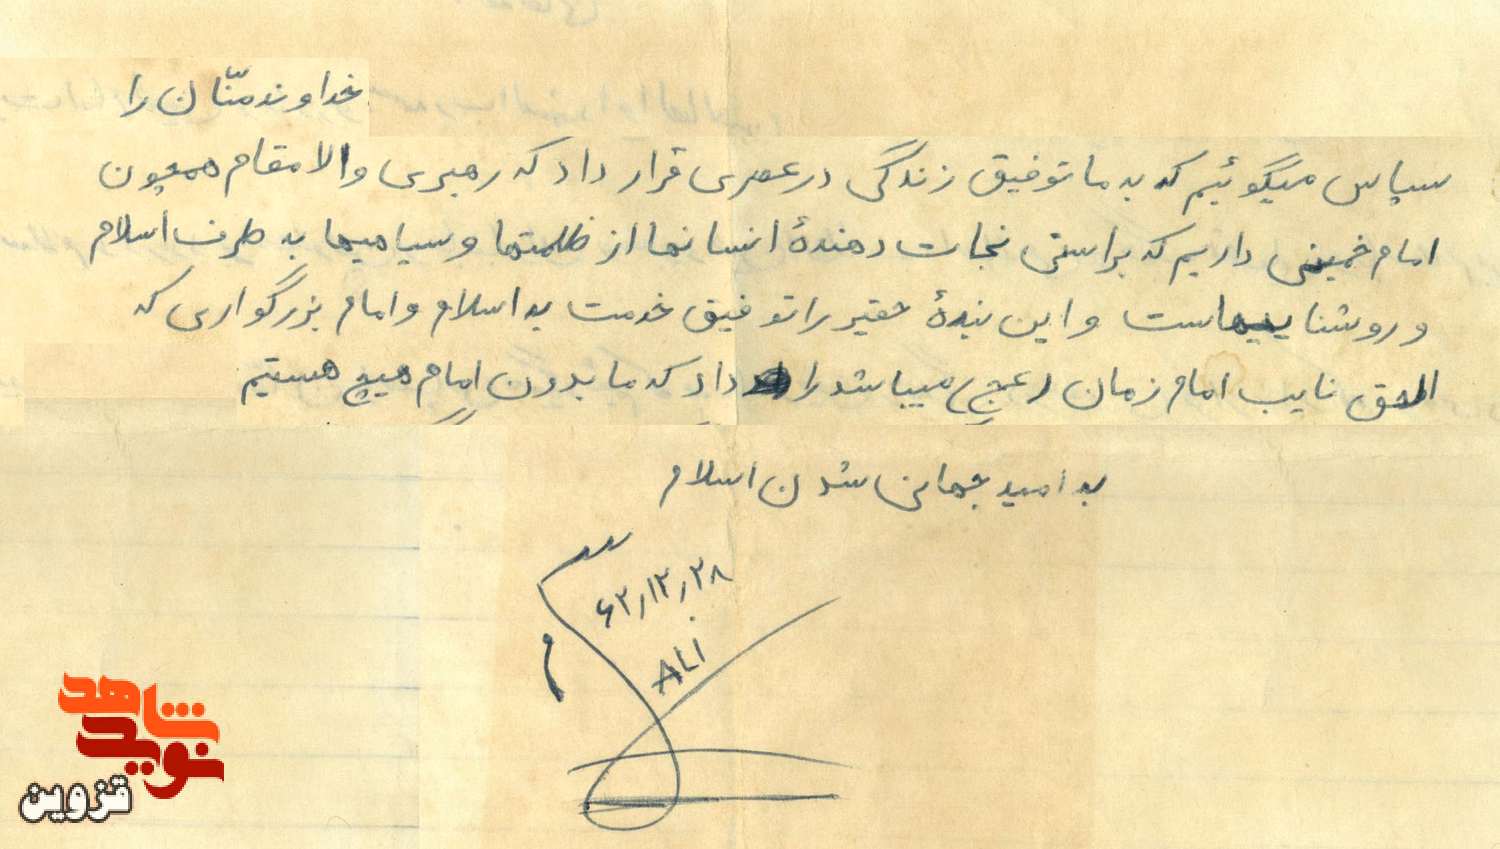 خداوند منّان را
سپاس میگوئیم که به ما توفیق زندگی در عصری قرار داد که رهبری والامقام همچون
امام خمینی داریم که براستی نجات دهندهٔ انسانها از ظلمتها و سیاهیها به طرف اسلام
و روشناییهاست و این بندهٔ حقیر را توفیق خدمت به اسلام و امام بزرگواری که
الحق نایب امام زمان (عج) میباشد را داد که ما بدون امام هیچ هستیم
به امید جهانی شدن اسلام
۶۲٫۱۲٫۲۸
ALI
شاهد
نوید
قزوین